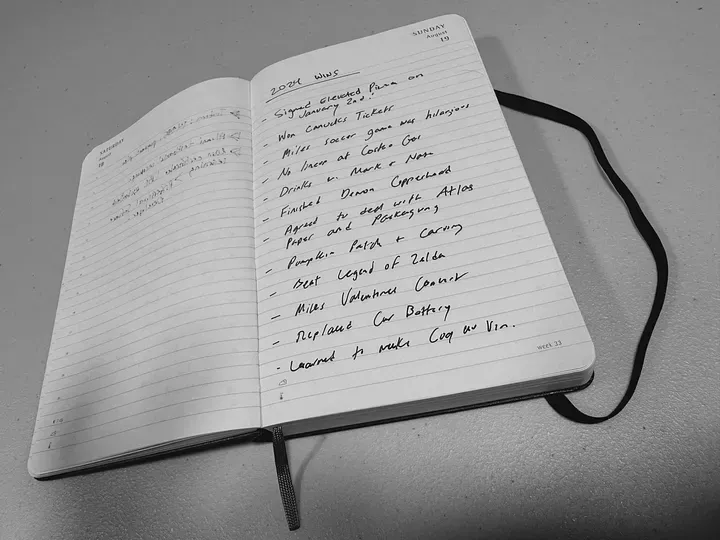 SATURDAY
August
18
SUNDAY
August
19
2024 WINS
- Signed Elevated Pizza on
January 2nd!
- Won Canucks Tickets
- Miles soccer game was hilarious
- No lineup at Costco Gas
- Drinks w. Mark + Nason
- Finished Demon Copperhead
- Agreed to deal with Atlas
Paper and Packaging
- Pumpkin Patch + Carving
- Beat Legend of Zelda
- Miles Valentines Concert
- Replaced Car Battery
- Learned to make Coq au Vin.
WEEK 33